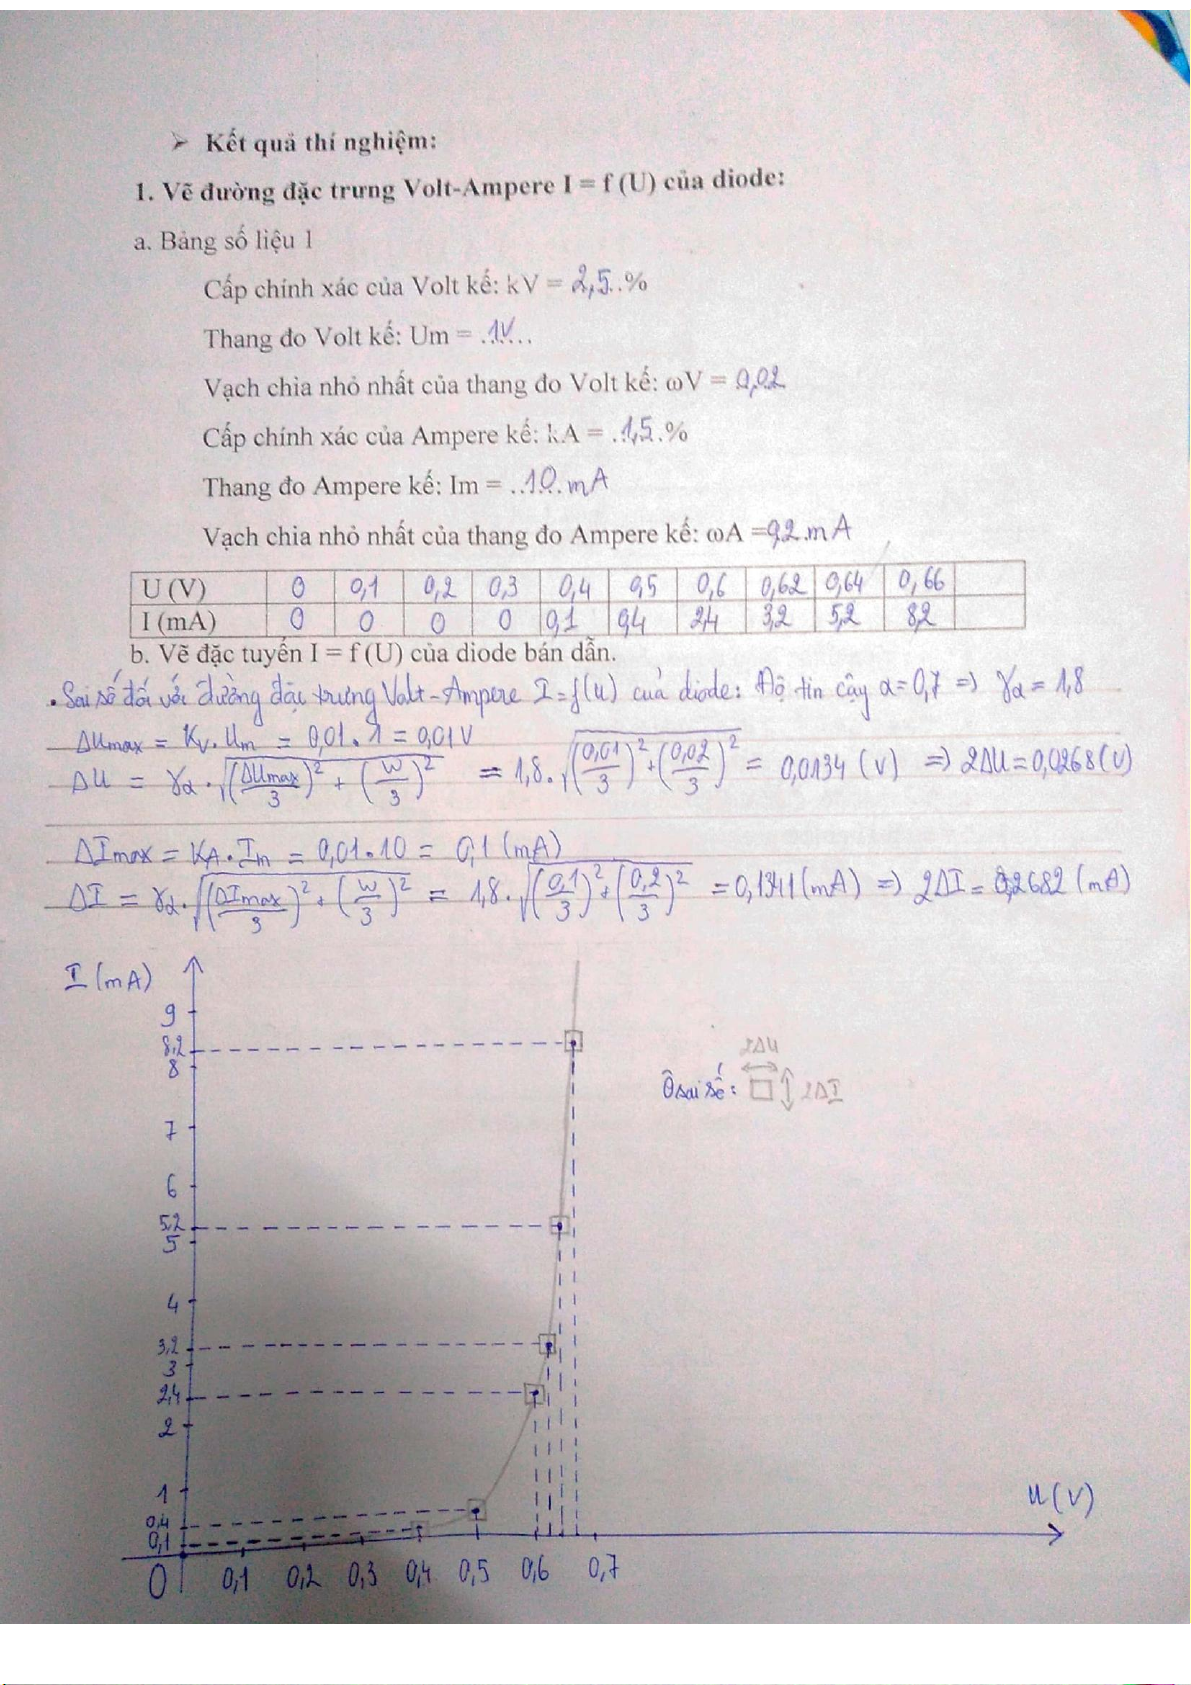 ➢ Kết quả thí nghiệm:
1. Vẽ đường đặc trưng Volt-Ampere I = f (U) của diode:
a. Bảng số liệu 1
Cấp chính xác của Volt kế: kV = 2,5..%
Thang đo Volt kế: Um = .1V...
Vạch chia nhỏ nhất của thang đo Volt kế: ωV = 0,02
Cấp chính xác của Ampere kế: kA = ..1,5.%
Thang đo Ampere kế: Im = ..10..mA
Vạch chia nhỏ nhất của thang đo Ampere kế: ωA =0,2.mA
U (V) 0 0,1 0,2 0,3 0,4 0,5 0,6 0,62 0,64 0,66
I (mA) 0 0 0 0 0,1 0,4 2,4 3,2 5,2 8,2
b. Vẽ đặc tuyến I = f (U) của diode bán dẫn.
. Sai số đối với đường đặc trưng Volt-Ampere I=f(u) của diode: Độ tin cậy α=0,7 => γα = 1,8
ΔUmax = Kv. Um = 0,01 . 1 = 0,01V
ΔU = γα . √((ΔUmax/3)² + (w/3)²) = 1,8. √((0,01/3)² + (0,02/3)²) = 0,0134 (V) => 2ΔU = 0,0268 (V)
ΔImax = KA. Im = 0,01.10 = 0,1 (mA)
ΔI = γα. √((ΔImax/3)² + (w/3)²) = 1,8. √((0,1/3)² + (0,2/3)²) = 0,1341 (mA) => 2ΔI = 0,2682 (mA)
I (mA)
9
8,2
8
7
6
5,2
5
4
3,2
3
2,4
2
1
0,4
0,1
2ΔU
Ô sai số: 2ΔI
U (V)
0 0,1 0,2 0,3 0,4 0,5 0,6 0,7